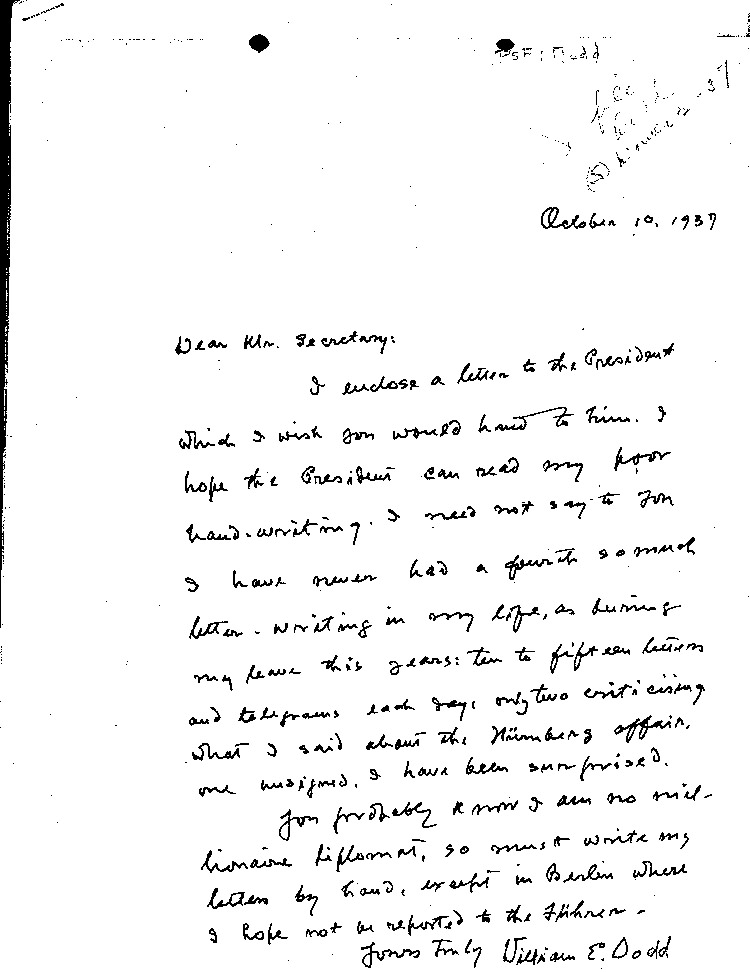 PSF: Dodd
October 10, 1937
Dear Mr. Secretary:
I enclose a letter to the President
which I wish you would hand to him. I
hope the President can read my poor
hand-writing. I need not say to you
I have never had a fourth so much
letter-writing in my life, as during
my leave this years: ten to fifteen letters
and telegrams each day, only two criticising
what I said about the Nürnberg affair,
one unsigned. I have been surprised.
You probably know I am no mil-
lionaire diplomat, so must write my
letters by hand, except in Berlin where
I hope not be reported to the Führer -
Yours Truly William E. Dodd